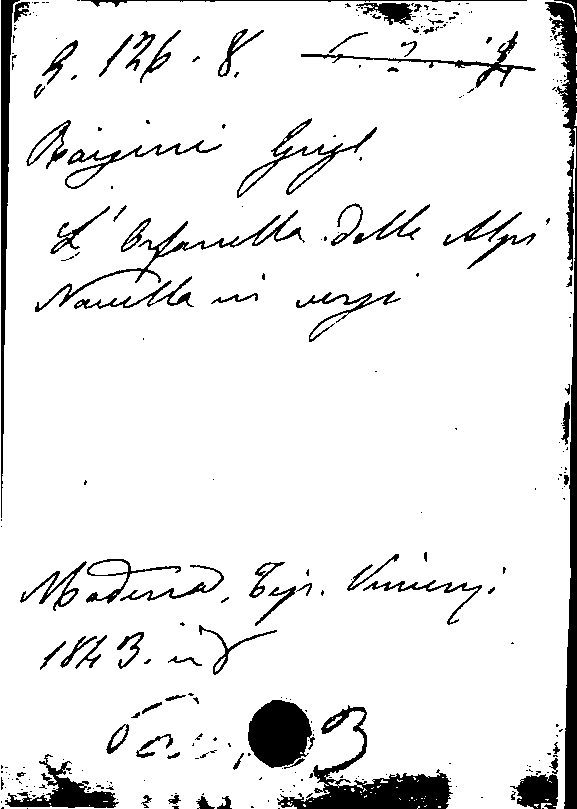 G. 126. 8.
Raisini Gugl.
L'Orfanella delle Alpi
Novella in versi
Modena, Tip. Vincenzi
1843. in 8
3